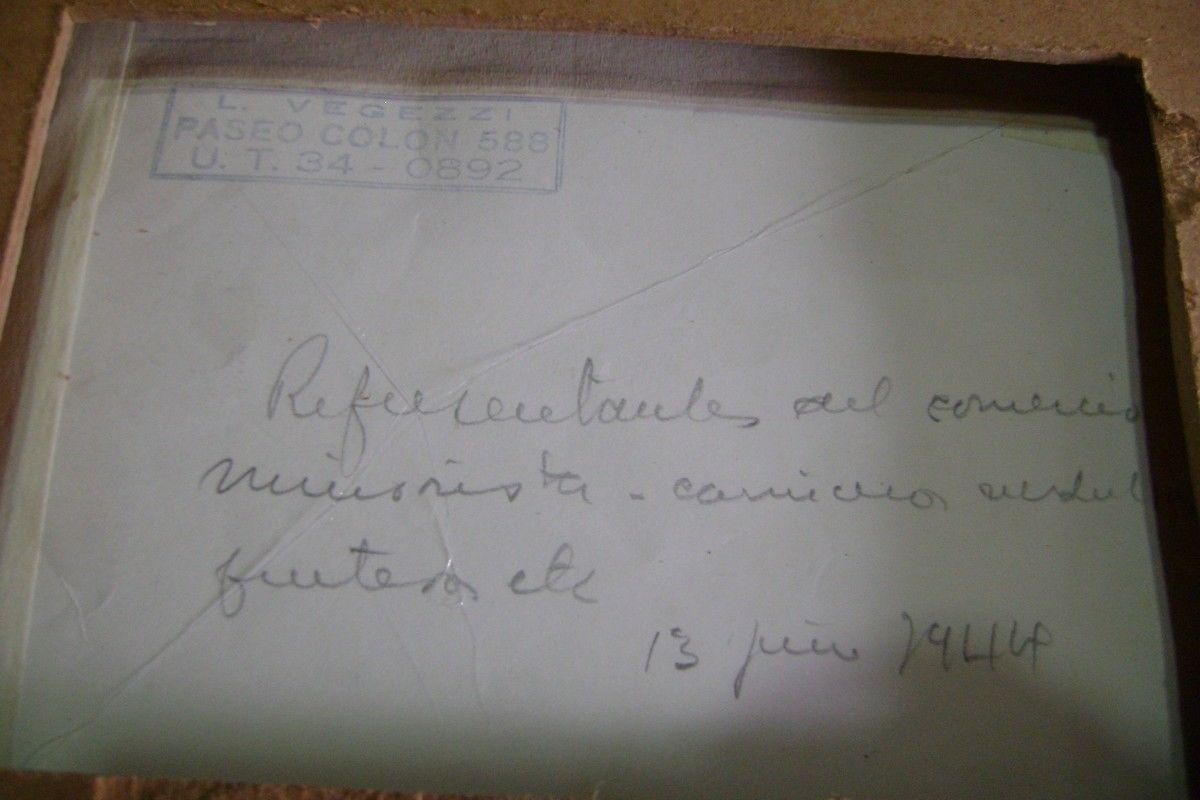 L. VEGEZZI
PASEO COLON 588
U. T. 34 - 0892
Representantes del comercio
minorista - carniceros verdul
fruteros etc
13 junio 1944